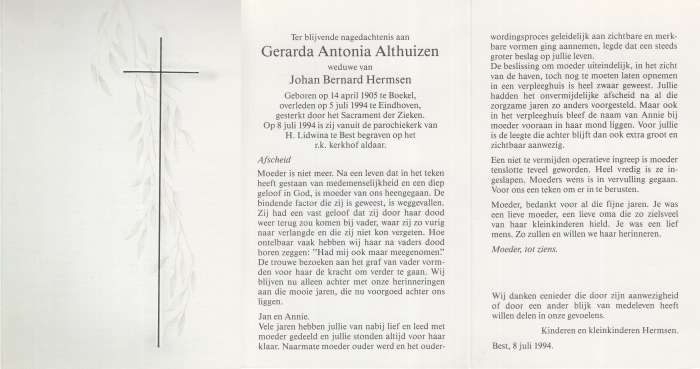 Ter blijvende nagedachtenis aan
Gerarda Antonia Althuizen
weduwe van
Johan Bernard Hermsen
Geboren op 14 april 1905 te Boekel,
overleden op 5 juli 1994 te Eindhoven,
gesterkt door het Sacrament der Zieken.
Op 8 juli 1994 is zij vanuit de parochiekerk van
H. Lidwina te Best begraven op het
r.k. kerkhof aldaar.
Afscheid
Moeder is niet meer. Na een leven dat in het teken
heeft gestaan van medemenselijkheid en een diep
geloof in God, is moeder van ons heengegaan. De
bindende factor die zij is geweest, is weggevallen.
Zij had een vast geloof dat zij door haar dood
weer terug zou komen bij vader, waar zij zo vurig
naar verlangde en die zij niet kon vergeten. Hoe
ontelbaar vaak hebben wij haar na vaders dood
horen zeggen: "Had mij ook maar meegenomen".
De trouwe bezoeken aan het graf van vader vorm-
den voor haar de kracht om verder te gaan. Wij
blijven nu alleen achter met onze herinneringen
aan die mooie jaren, die nu voorgoed achter ons
liggen.
Jan en Annie.
Vele jaren hebben jullie van nabij lief en leed met
moeder gedeeld en jullie stonden altijd voor haar
klaar. Naarmate moeder ouder werd en het ouder-
wordingsproces geleidelijk aan zichtbare en merk-
bare vormen ging aannemen, legde dat een steeds
groter beslag op jullie leven.
De beslissing om moeder uiteindelijk, in het zicht
van de haven, toch nog te moeten laten opnemen
in een verpleeghuis is heel zwaar geweest. Jullie
hadden het onvermijdelijke afscheid na al die
zorgzame jaren zo anders voorgesteld. Maar ook
in het verpleeghuis bleef de naam van Annie bij
moeder vooraan in haar mond liggen. Voor jullie
is de leegte die achter blijft dan ook extra groot en
zichtbaar aanwezig.
Een niet te vermijden operatieve ingreep is moeder
tenslotte teveel geworden. Heel vredig is ze in-
geslapen. Moeders wens is in vervulling gegaan.
Voor ons een teken om er in te berusten.
Moeder, bedankt voor al die fijne jaren. Je was
een lieve moeder, een lieve oma die zo zielsveel
van haar kleinkinderen hield. Je was een lief
mens. Zo zullen en willen we haar herinneren.
Moeder, tot ziens.
Wij danken eenieder die door zijn aanwezigheid
of door een ander blijk van medeleven heeft
willen delen in onze gevoelens.
Kinderen en kleinkinderen Hermsen.
Best, 8 juli 1994.